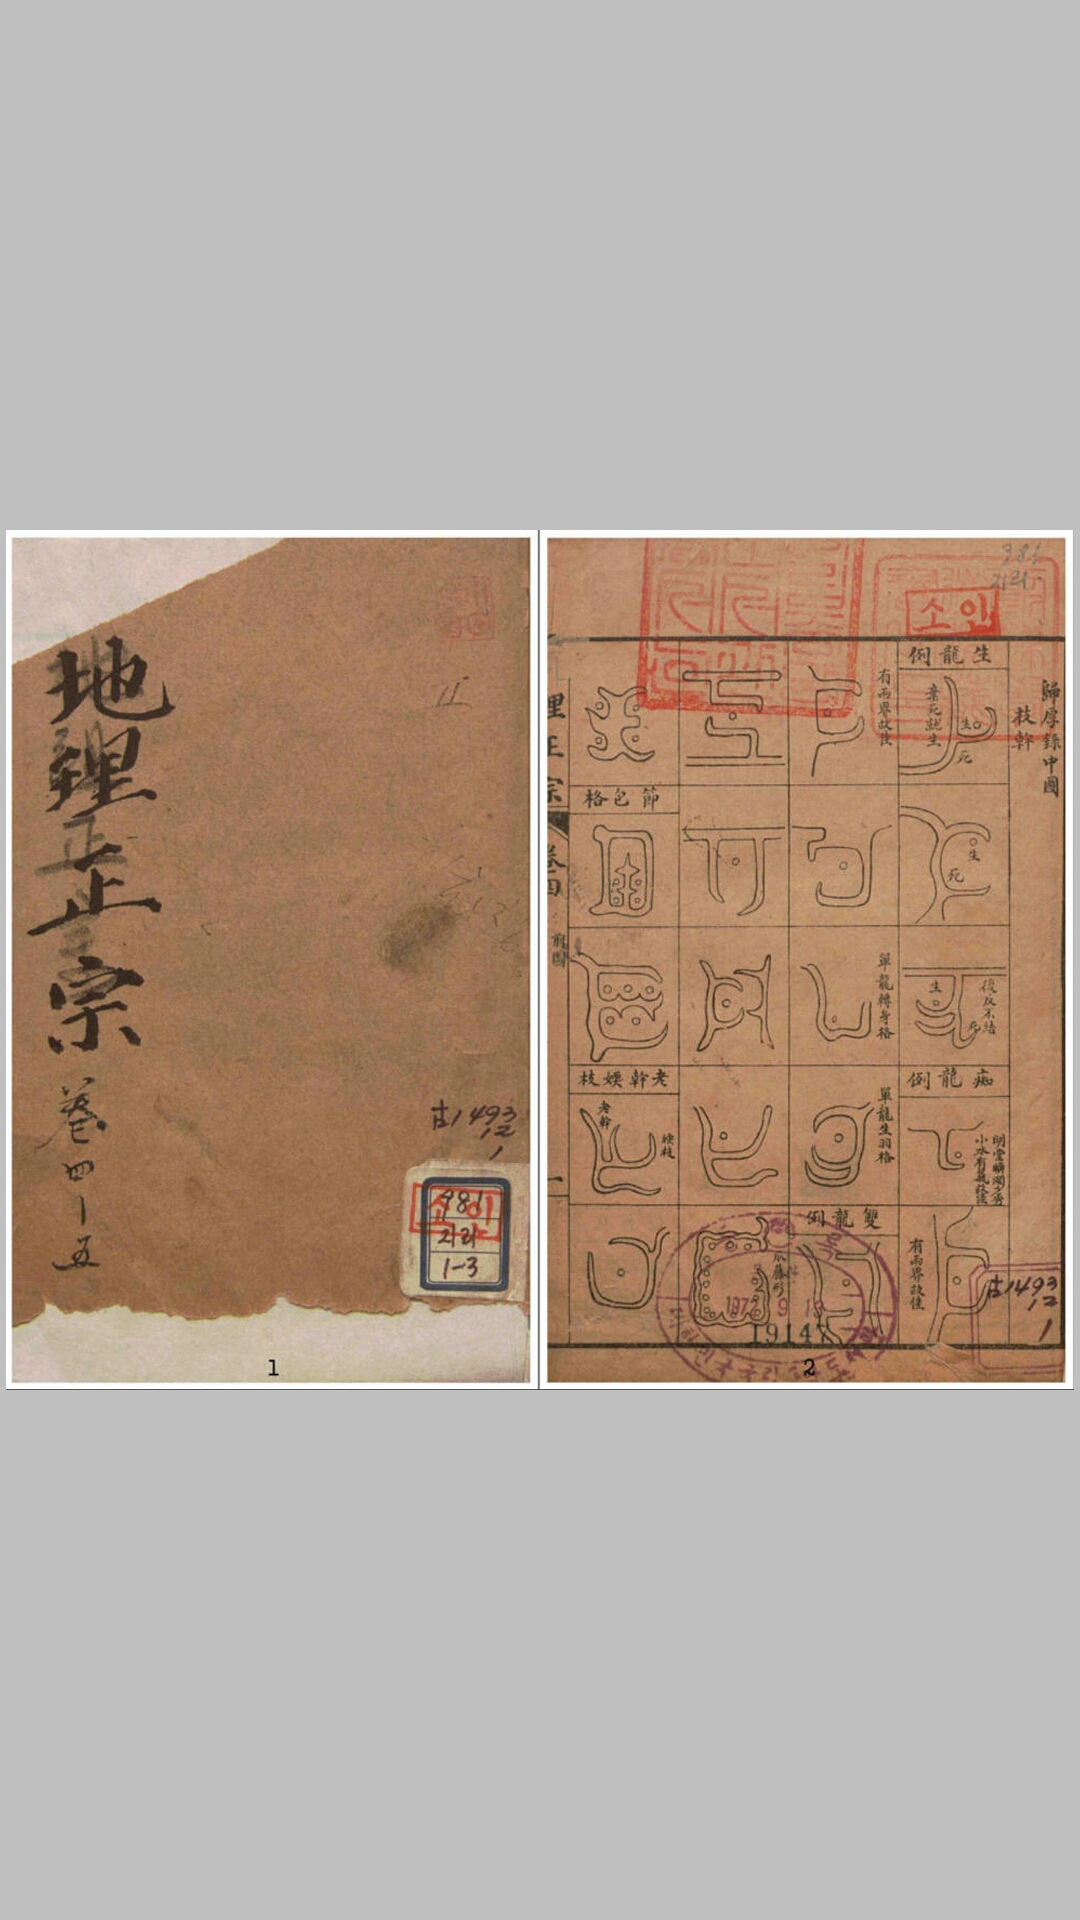 地理正宗
卷四-五
古1493
12
1
981
소인
2121
1-3
1
981
2121
소인
歸厚錄中圖
枝幹
生龍例
棄死就生
生
死
生
死
後反不結
生
死
痴龍例
明堂
小水有氣
有兩界故佳
有兩界故佳
單龍轉身格
單龍生羽格
雙龍例
瓜藤形
節包格
老幹嫩枝
老幹
嫩枝
理正宗
卷四
前圖
一
古1493
12
1
19147
2